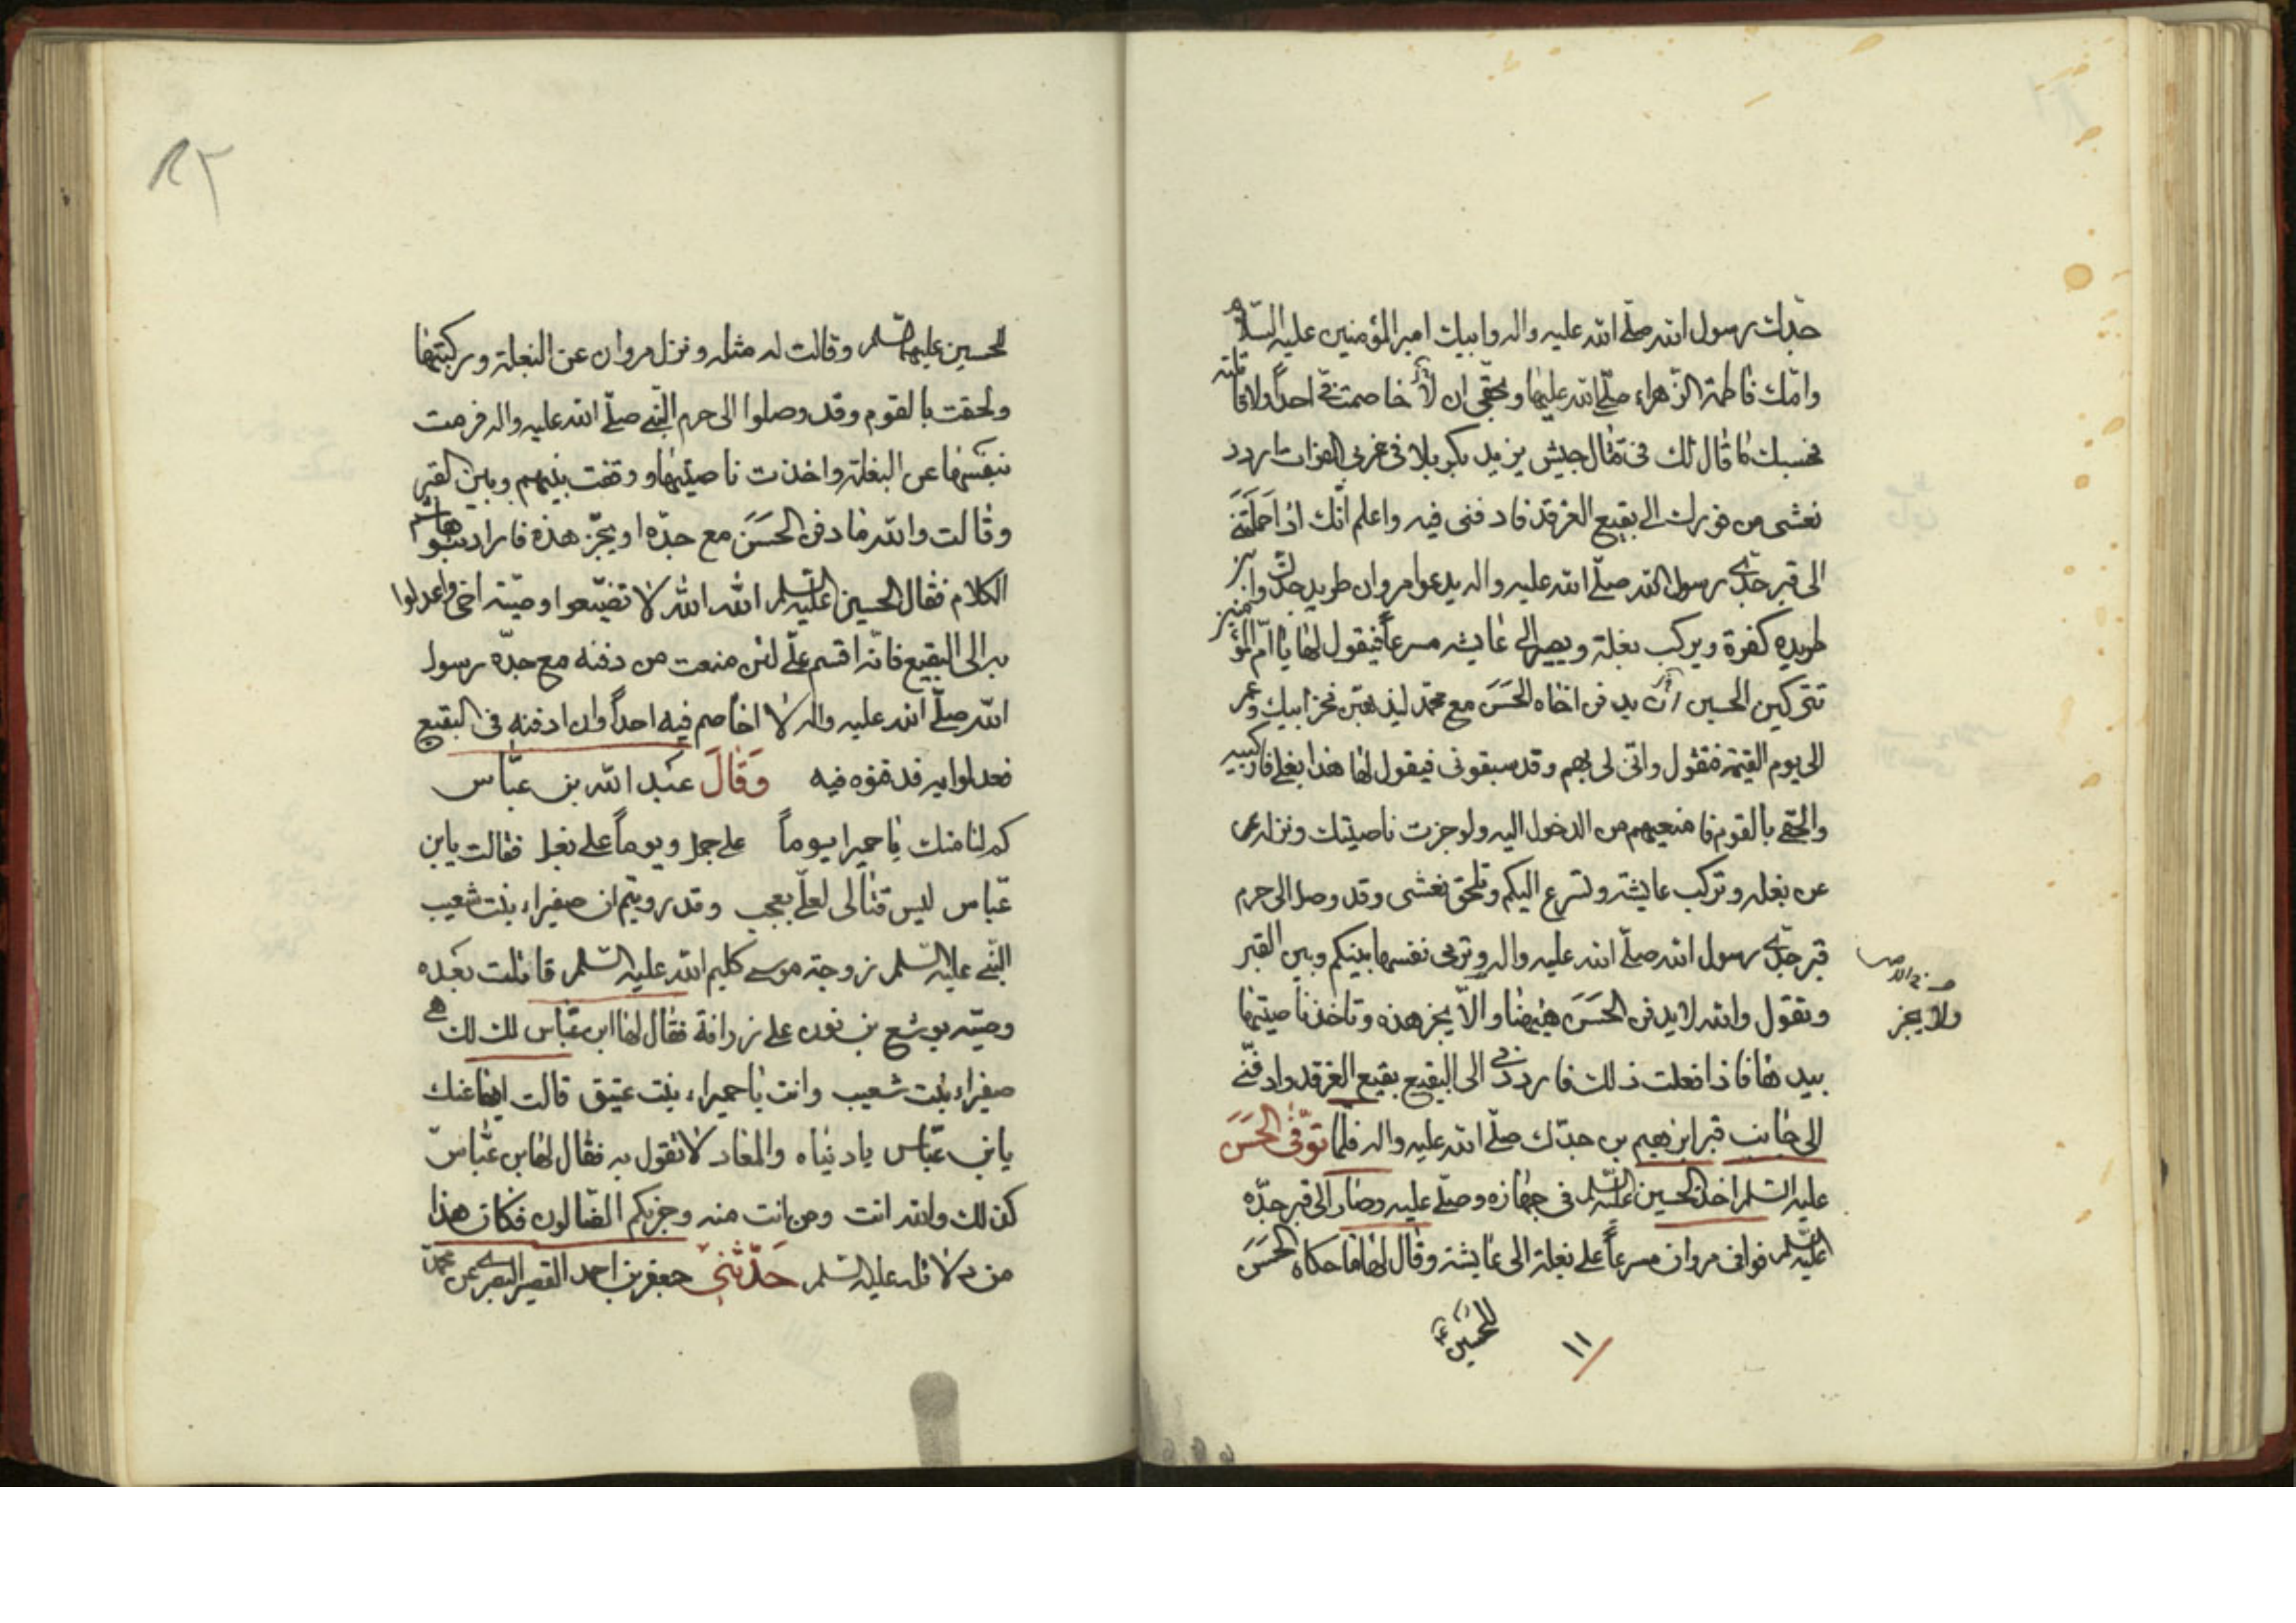 حدك رسول الله صلّى الله عليه واله وابيك امير المؤمنين عليه السّلام
وامّك فاطمة الزّهراء صلّى الله عليها وبحقّى ان لا خاصمت فيّ احداً ولا قاتلته
فحسبك ما قال لك فى قتال جيش يزيد بكربلا فى غربى الفرات اردد
نعشى من فورك الى بقيع الغرقد فادفنى فيه واعلم انّك اذا حملتنى
الى قبر جدّى رسول الله صلّى الله عليه واله يدعوا مروان طريد جدّك وابن
طريده كفرة ويركب بغلة ويصير الى عايشه مسرعاً فيقول لها يا امّ المؤمنين
تتركين الحسين ان يدفن اخاه الحَسَنَ مع محمّد ليذهبن فخر ابيك وعمر
الى يوم القيمة فتقول وانّى لى بهم وقد سبقونى فيقول لها هذا بغلى فاركبيه
والحقى بالقوم فامنعيهم من الدخول اليه ولو جزت ناصيتك ونزله عن
عن بغله وتركب عايشة وتسرع اليكم وتلحق نعشى وقد وصل الى حرم
قبر جدّى رسول الله صلّى الله عليه واله وترمى نفسها بينكم وبين القبر
وتقول والله لا يدفن الحَسَنَ هيهنا والّا يجز هذه وتاخذ ناصيتها
ولا يجز
بيدها فاذا فعلت ذلك فارددنى الى البقيع بقيع الغرقد وادفنّى
الى جانب قبر ابرٰهيم بن جدّك صلّى الله عليه واله فلمّا توفّى الحَسَنَ
عليه السّلم اخذ الحسين عليه السّلم فى جهازه وصلّى عليه وصار الى قبر جدّه
عليه السّلم فوافى مروان مسرعاً على بغلة الى عايشة وقال لها ما حكاه الحَسَنَ
للحسين ع
١١
٨٢
للحسين عليهما السّلم وقالت له مثله ونزل مروان عن البغلة وركبتها
ولحقت بالقوم وقد وصلوا الى حرم النّبى صلّى الله عليه واله فرمت
بنفسها عن البغلة واخذت ناصيتها ووقفت بينهم وبين القبر
وقالت والله ما دفن الحَسَنَ مع جدّه او يجّز هذه فاراد بنو هاشم
الكلام فقال الحسين عليه السّلم الله الله لا تضيّعوا وصيّته اخى واعدلوا
به الى البقيع فانّه اقسم علىّ لئن منعت من دفنه مع جدّه رسول
الله صلّى الله عليه واله لا اخاصم فيه احداً وان ادفنه فى البقيع
فعدلوا به فدفنوه فيه وَقَالَ عبد الله بن عبّاس
كم لنا منك يا حميرا يوماً على جمل ويوماً على بغل فقالت يابن
عبّاس ليس قتالى لعلى بعجب وقد رويتم ان صفيراء بنت شعيب
النّبى عليه السّلم زوجة موسى كليم الله عليه السّلم قاتلت بعده
وصيّه يوشع بن نون على زرافة فقال لها ابن عبّاس لك لك هى
صفيراء بنت شعيب وانت يا حميراء بنت عتيق قالت ايضا عنك
يابن عبّاس يا دنياه والمعاد لا تقول به فقال لها ابن عبّاس
كذلك والله انت ومن انت منه وحزبكم الضّالون فكان هذا
من دلائله عليه السّلم حَدّثَنِى جعفر بن احمد القصير البصرى عن محمّد